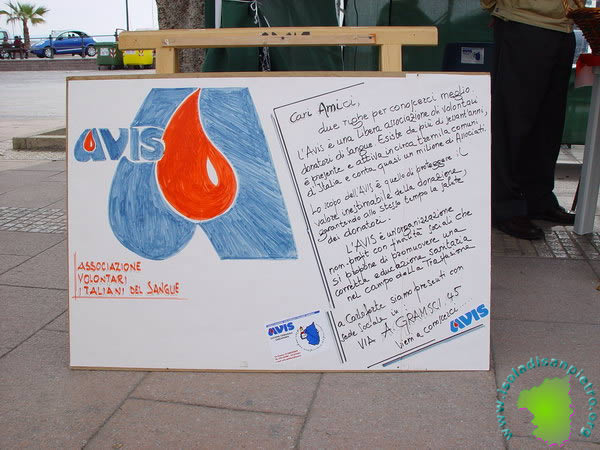 AVIS
ASSOCIAZIONE
VOLONTARI
ITALIANI DEL SANGUE
Cari Amici,
due righe per conoscerci meglio.
L'AVIS è una Libera associazione di volontari
donatori di Sangue. Esiste da più di settant'anni,
è presente e attiva in circa tremila comuni
d'Italia e conta quasi un milione di Associati.
Lo scopo dell'AVIS è quello di proteggere il
valore inestimabile della donazione,
garantendo allo stesso tempo la salute
dei donatori.
L'AVIS è un'organizzazione
non-profit con finalità sociali che
si propone di promuovere una
corretta educazione sanitaria
nel campo della Trasfusione
a Carloforte siamo presenti con
sede Sociale in
VIA A. GRAMSCI 45
Vieni a conoscerci...
AVIS
AVIS
www.isoladisanpietro.org